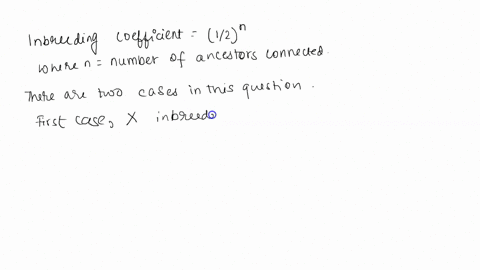 Inbreeding coefficient = (1/2)^n
where n = number of ancestors connected.
There are two cases in this question.
First case, X inbreed